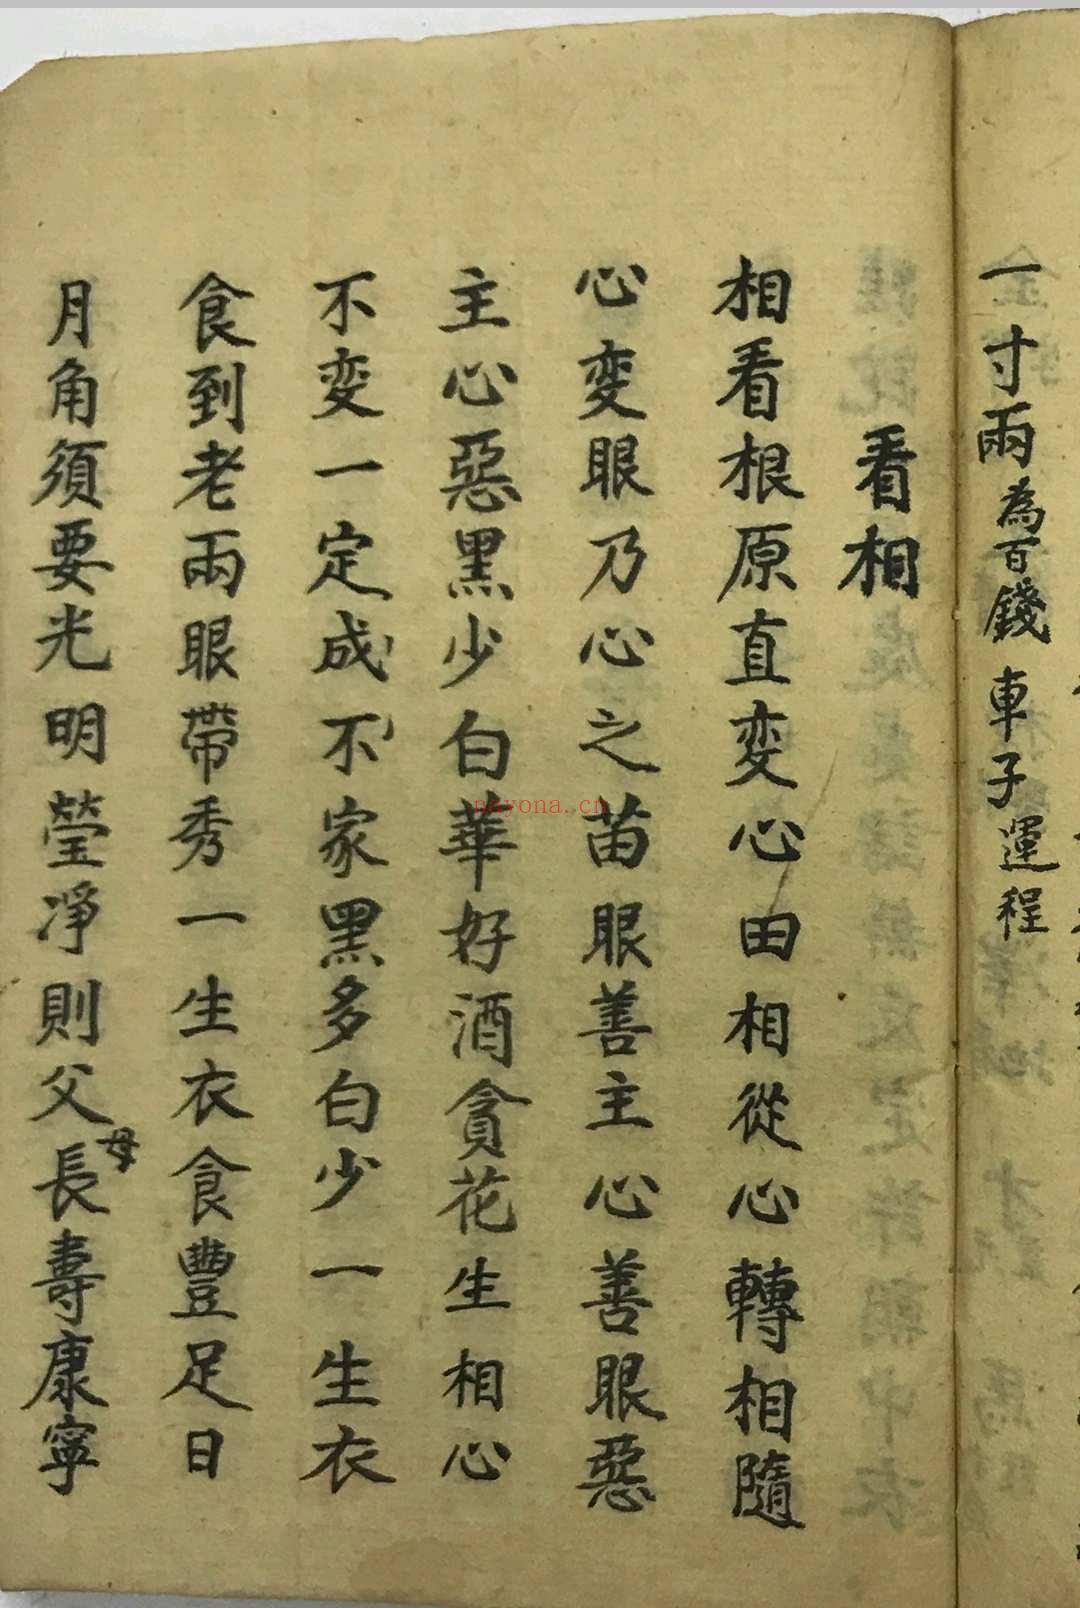 一寸兩為百錢車子運程
看相
相看根原直变心田相從心轉相隨
心变眼乃心之苗眼善主心善眼惡
主心惡黑少白華好酒貪花生相心
不变一定成不家黑多白少一生衣
食到老兩眼帶秀一生衣食豐足日
月角須要光明瑩凈則父母長壽康寧
nayona.cn